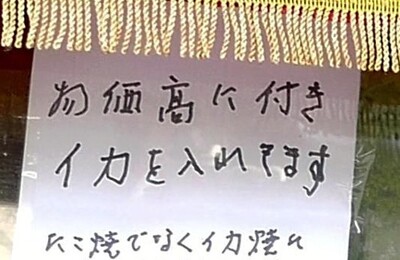 物価高に付き
イカを入れてます
たこ焼でなくイカ焼に